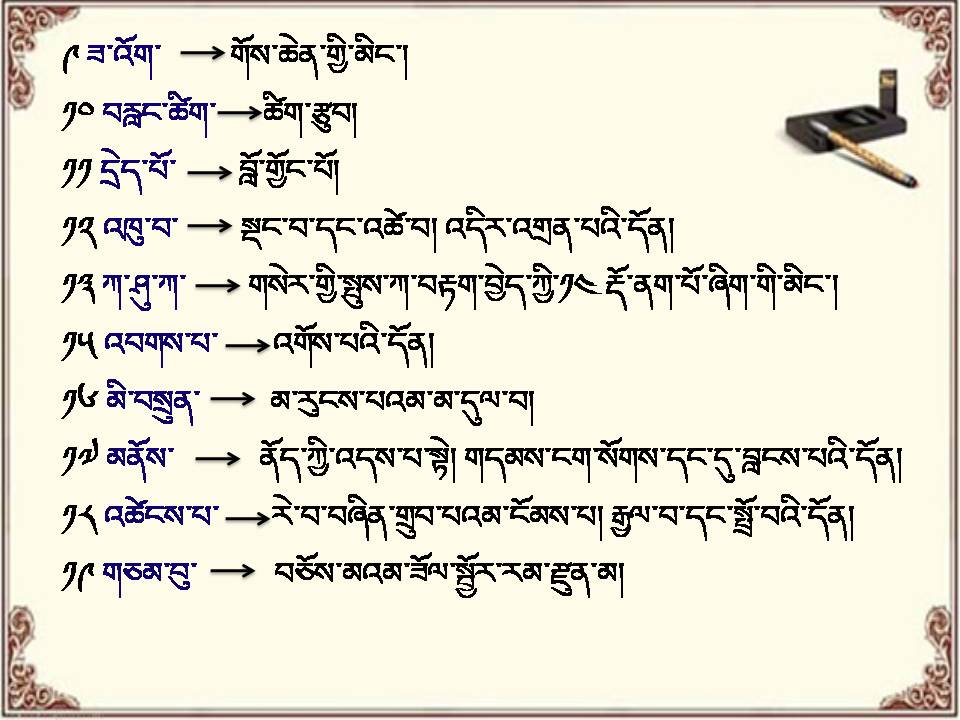 ༩ ཟ་འོག་ → གོས་ཆེན་གྱི་མིང་།
༡༠ བརླང་ཚིག་ → ཚིག་རྩུབ།
༡༡ དྲེད་པོ་ → བློ་གྱོང་པོ།
༡༢ འཁུ་བ་ → སྡང་བ་དང་འཚེ་བ། འདིར་འགྲན་པའི་དོན།
༡༣ ཀ་ཤུ་ཀ་ → གསེར་གྱི་སྤུས་ཀ་བརྟག་བྱེད་ཀྱི་༡༤ རྡོ་ནག་པོ་ཞིག་གི་མིང་།
༡༥ འབགས་པ་ → འགོས་པའི་དོན།
༡༦ མི་བསྲུན་ → མ་རུངས་པའམ་མ་དུལ་བ།
༡༧ མནོས་ → ནོད་ཀྱི་འདས་པ་སྟེ། གདམས་ངག་སོགས་དང་དུ་བླངས་པའི་དོན།
༡༨ འཚེངས་པ་ → རེ་བ་བཞིན་གྲུབ་པའམ་ངོམས་པ། རྒྱལ་བ་དང་སྤྲོ་བའི་དོན།
༡༩ གཅམ་བུ་ → བཅོས་མའམ་ཟོལ་སྦྱོར་རམ་རྫུན་མ།